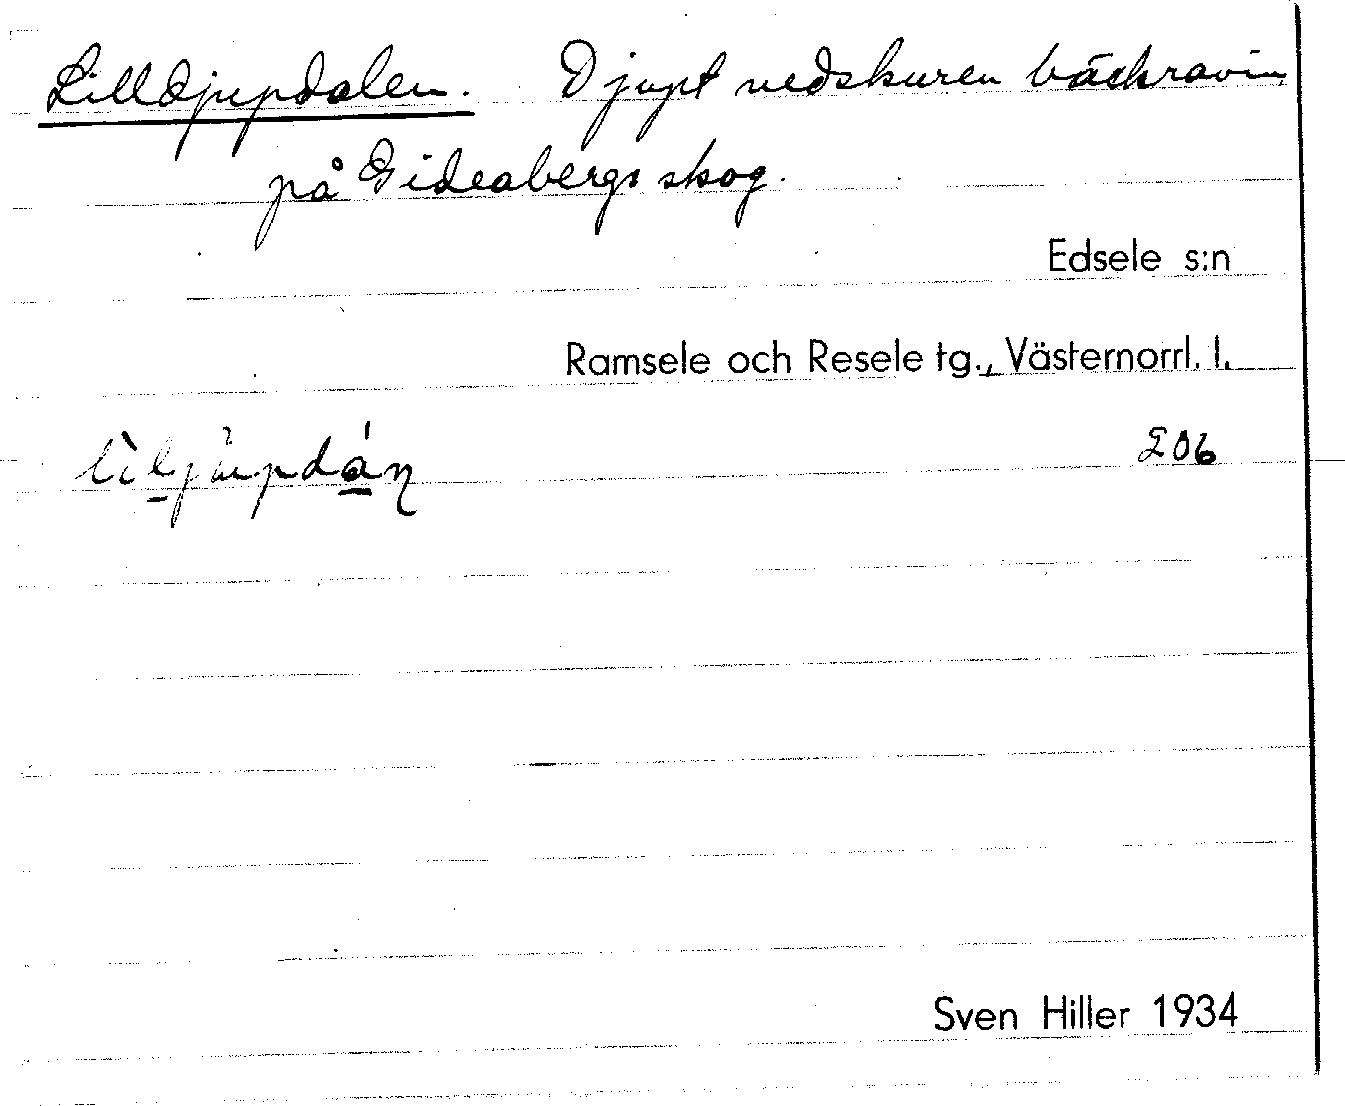 Lilldjupdalen. Djupt nedskuren bäckravin
på Gideabergs skog.
Edsele s:n
Ramsele och Resele tg., Västernorrl. l.
206
Sven Hiller 1934